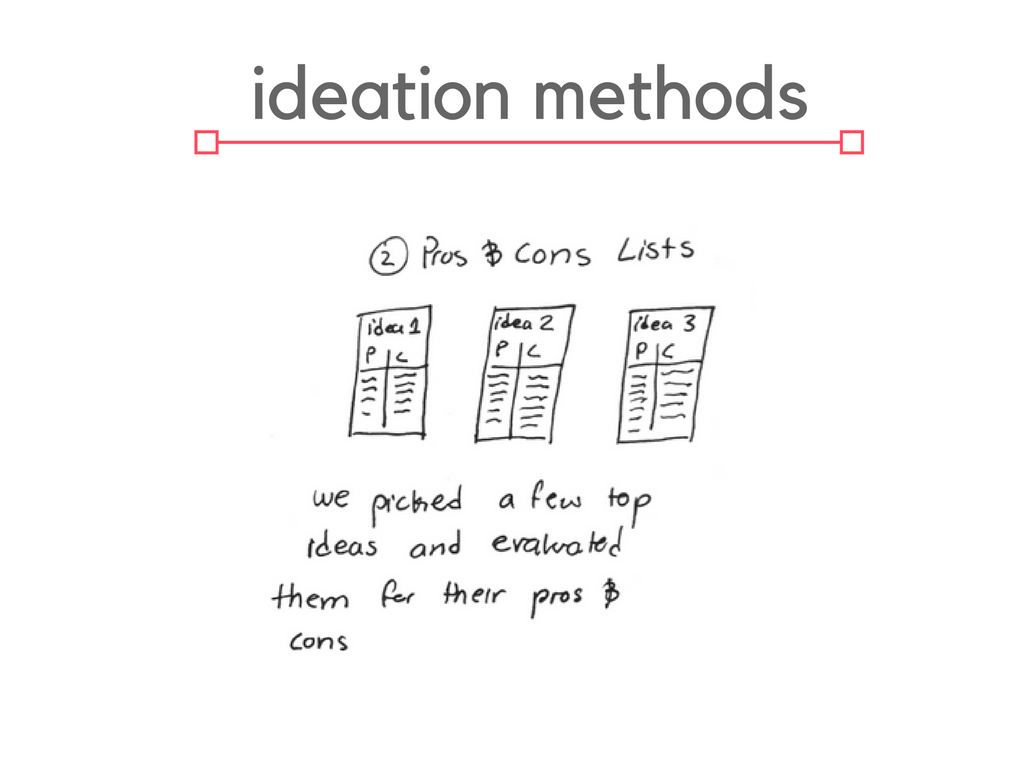 ideation methods
② Pros & Cons Lists
idea 1 idea 2 idea 3
P C P C P C
we picked a few top
ideas and evaluated
them for their pros &
cons